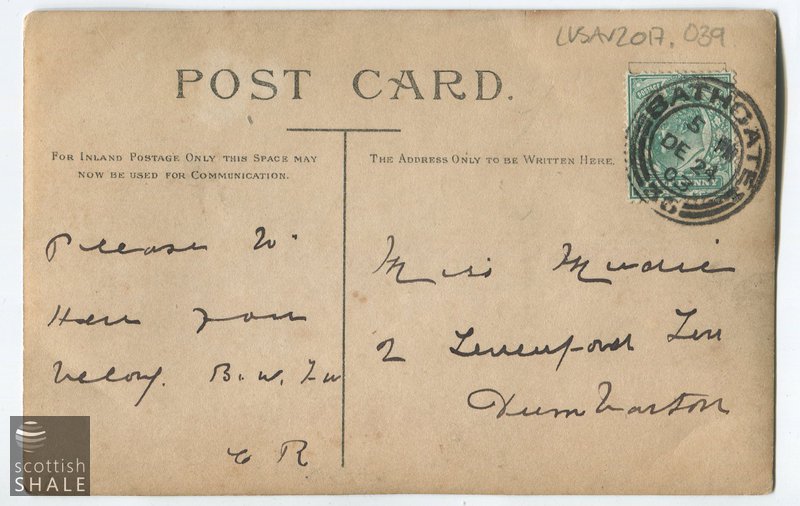 LVSAV2017.039
POST CARD.
FOR INLAND POSTAGE ONLY THIS SPACE MAY
NOW BE USED FOR COMMUNICATION.
THE ADDRESS ONLY TO BE WRITTEN HERE.
BATHGATE
DE 24
PENNY
Please
Hear from
B. W.
C R
Miss Mudie
2 Levenford Terr
Dumbarton
scottish
SHALE